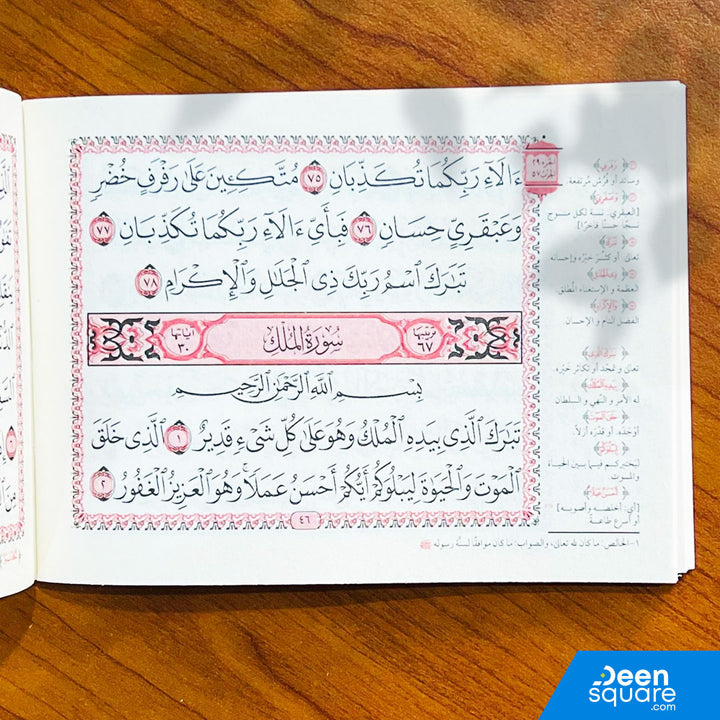 ءَالَآءِ رَبِّكُمَا تُكَذِّبَانِ ٧٥ مُتَّكِـِٔينَ عَلَىٰ رَفْرَفٍ خُضْرٍ
وَعَبْقَرِيٍّ حِسَانٍ ٧٦ فَبِأَيِّ ءَالَآءِ رَبِّكُمَا تُكَذِّبَانِ ٧٧
تَبَٰرَكَ ٱسْمُ رَبِّكَ ذِى ٱلْجَلَٰلِ وَٱلْإِكْرَامِ ٧٨
مرتيبها ٦٧ سُورَةُ المُلْكِ آياتها ٣٠
بِسْمِ ٱللَّهِ ٱلرَّحْمَٰنِ ٱلرَّحِيمِ
تَبَٰرَكَ ٱلَّذِى بِيَدِهِ ٱلْمُلْكُ وَهُوَ عَلَىٰ كُلِّ شَىْءٍ قَدِيرٌ ١ ٱلَّذِى خَلَقَ
ٱلْمَوْتَ وَٱلْحَيَوٰةَ لِيَبْلُوَكُمْ أَيُّكُمْ أَحْسَنُ عَمَلًا ۚ وَهُوَ ٱلْعَزِيزُ ٱلْغَفُورُ ٢
٤٦
الجزء ٢٩
الحزب ٥٧
رفرف
وسائد أو فرش مرتفعة
وعبقري
تبارك
تعالى أو كثر خيره وإحسانه
ذي الجلال
العظمة و الاستغناء المطلق
والإكرام
الفضل التام و الإحسان
تعالى و تمجد أو تكاثر خيره
بيده الملك
له الأمر و النهي و السلطان
خلق الموت
أوجده أو قدره أزلاً
ليبلوكم
ليختبركم فيما بين الحياة
والموت
أحسن عملا
[أي: أخلصه وأصوبه]
أو أسرع طاعة
١- الخالص: ما كان لله تعالى، والصواب: ما كان موافقا لسنة رسوله ﷺ
Deen
square
.com